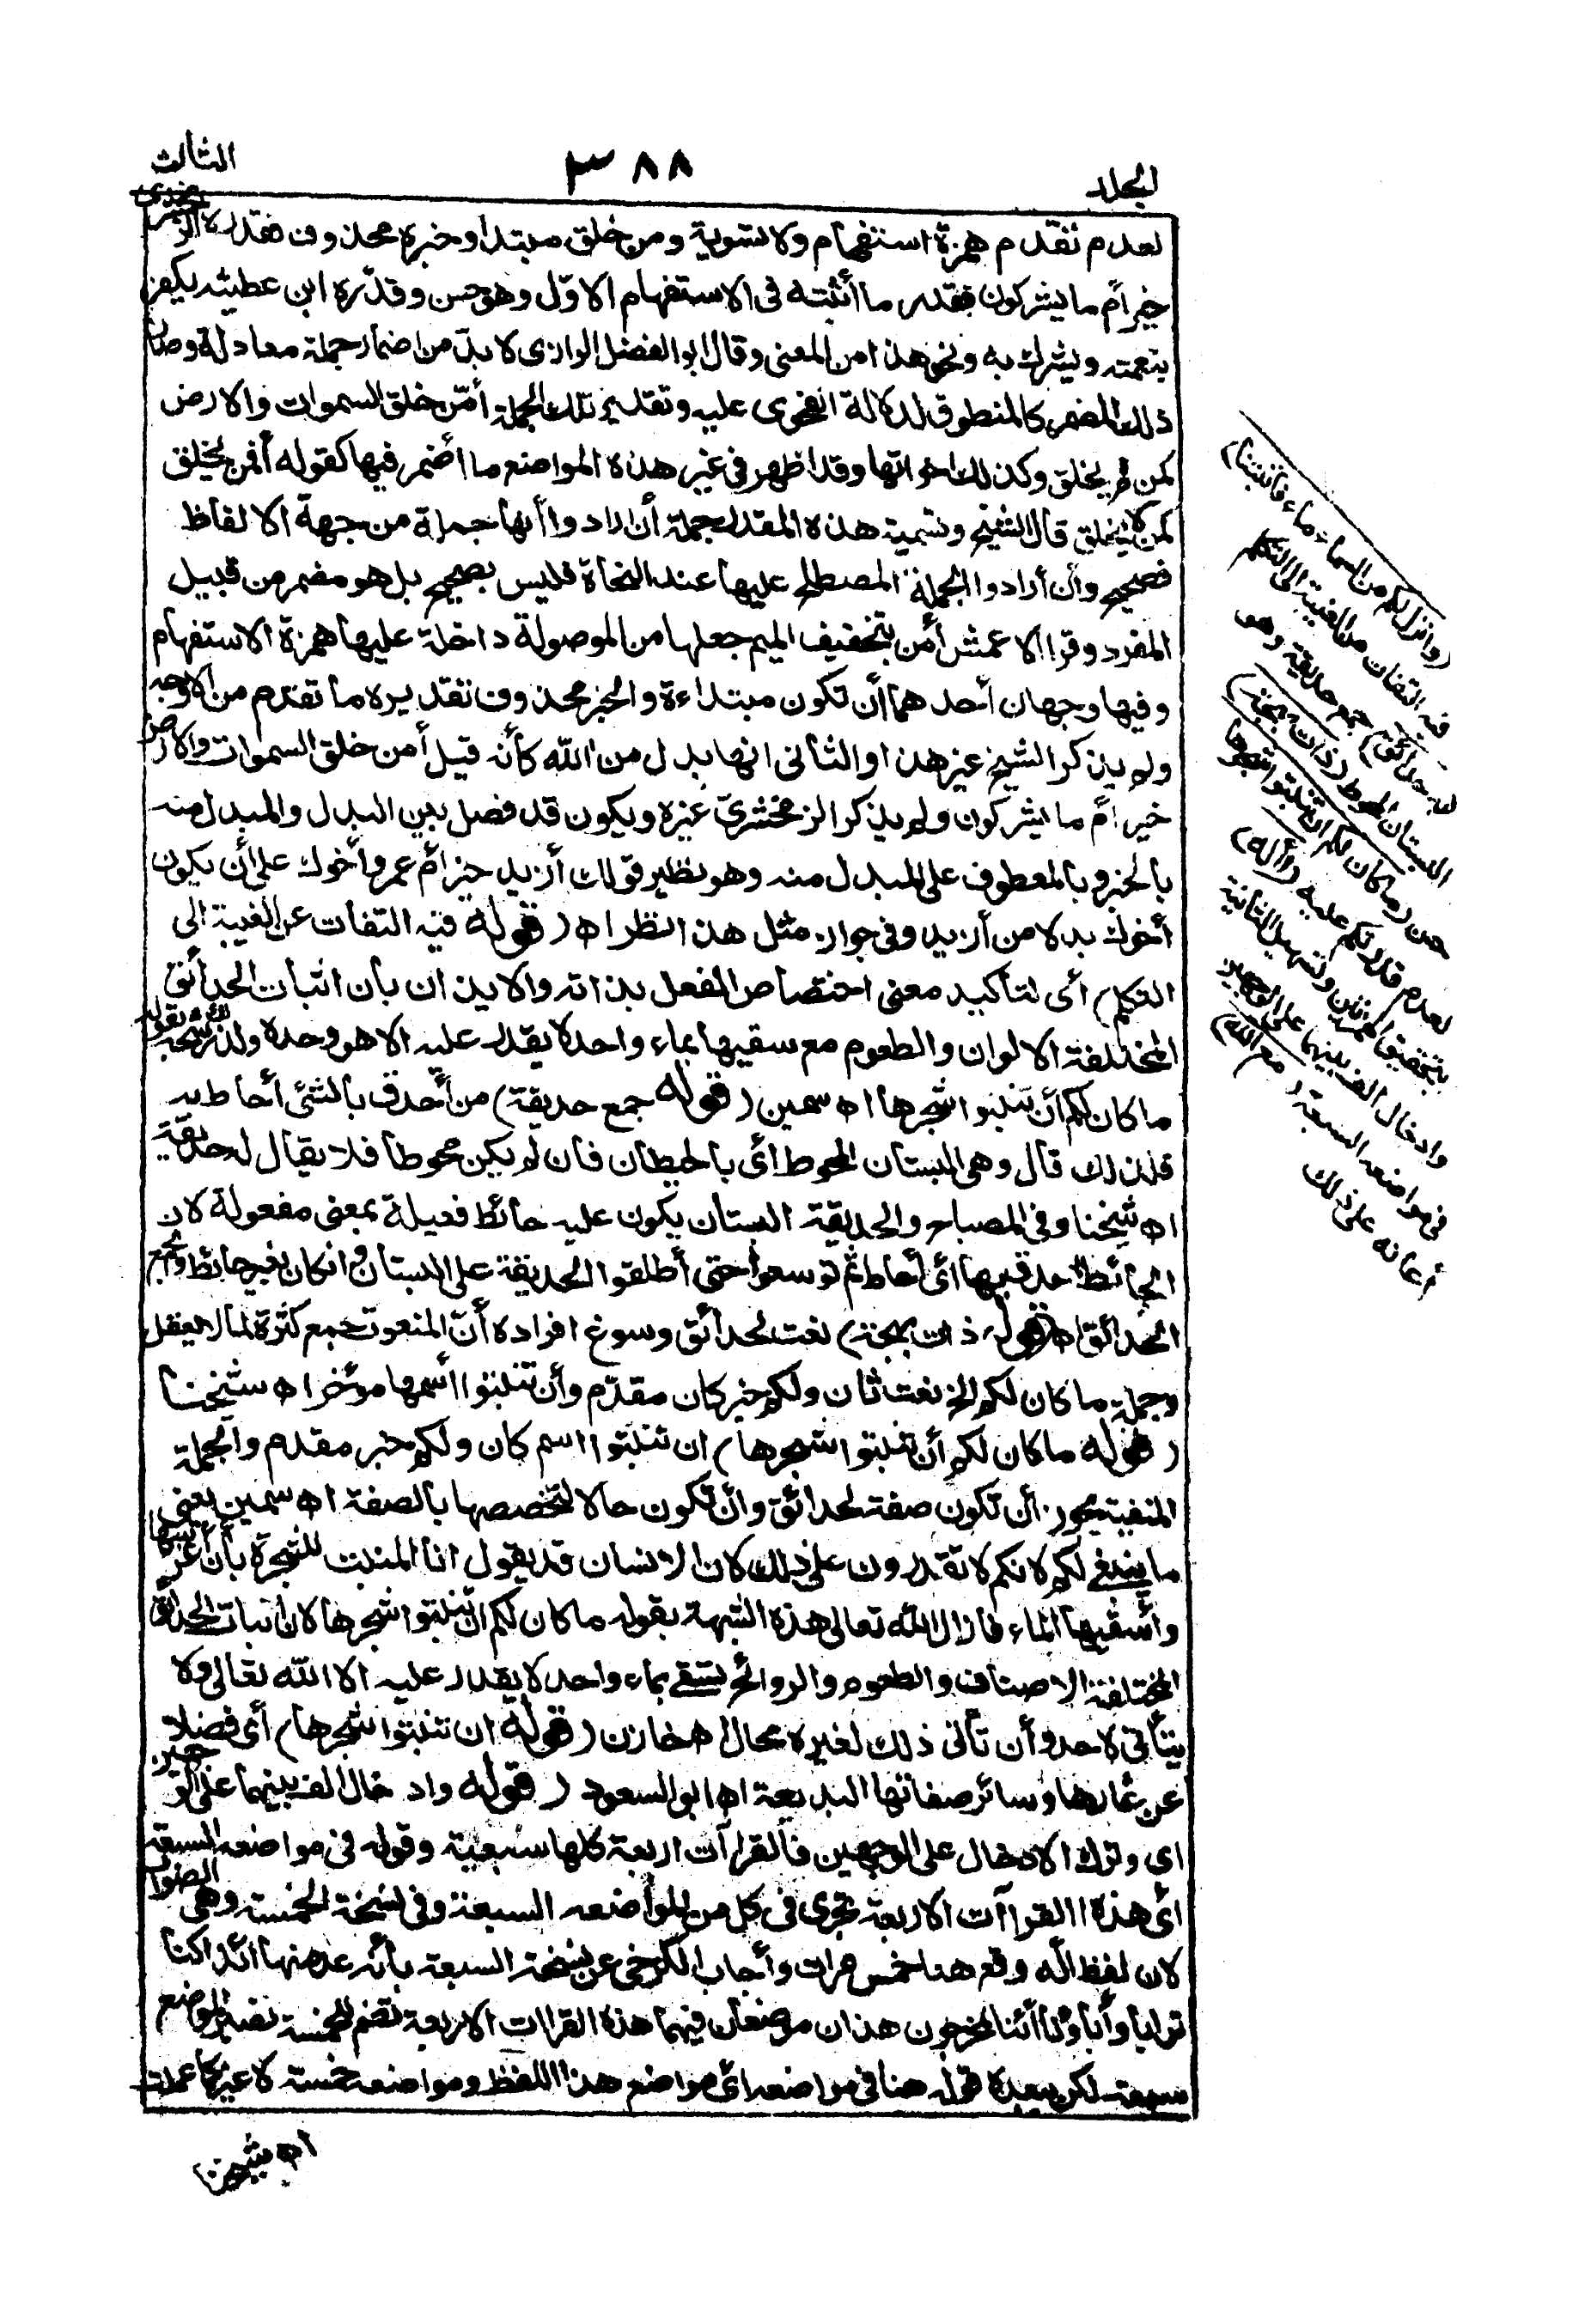 المجلد
٣٨٨
الثالث
لعدم تقدم همزة استفهام ولا تسوية ومن خلق مبتدا وخبره محذوف فقدره الزمخشرى
خير أم ما يشركون فقدر ما أثبته فى الاستفهام الاوّل وهو حسن وقدّره ابن عطيه يكفر
بنعمته ويشرك به ونحو هذا من المعنى وقال ابو الفضل الرازى لا بدّ من اضمار جملة معادلة وصار
ذلك المضمر كالمنطوق لدلالة الفحوى عليه وتقدير تلك الجملة أمّن خلق السموات والارض
كمن لم يخلق وكذلك اخواتها وقد اظهر فى غير هذه المواضع ما أضمر فيها كقوله أفمن يخلق
كمن لا يخلق قال الشيخ وتسمية هذه المقدر جملة أن ارادوا أنها جملة من جهة الالفاظ
فصحيح وأن أرادوا الجملة المصطلح عليها عند النحاة فليس بصحيح بل هو مضمر من قبيل
المفرد وقرا الاعمش أمن بتخفيف الميم جعلها من الموصولة داخلة عليها همزة الاستفهام
وفيها وجهان أحدهما أن تكون مبتداءة والخبر محذوف تقديره ما تقدم من الاوجه
ولم يذكر الشيخ غير هذا والثانى انها بدل من الله كأنه قيل أمن خلق السموات والارض
خير أم ما يشركون ولم يذكر الزمخشرىّ غيره ويكون قد فصل بين البدل والمبدل منه
بالخبر وبالمعطوف على المبدل منه وهو نظير قولك أزيد خير أم عمرو أخوك على أن يكون
أخوك بدلا من أزيد وفى جواز مثل هذا نظر اه (قوله فيه التفات عن الغيبة الى
التكلم) أى لتأكيد معنى اختصاص الفعل بذاته والايذان بأن اثبات الحدائق
المختلفة الالوان والطعوم مع سقيها بماء واحد لا يقدر عليه الا هو وحده ولذا رشحه بقوله
ما كان لكم أن تنبتوا شجرها اه سمين (قوله جمع حديقة) من أحدق بالشئ أحاط به
فلذلك قال وهى البستان المحوط أى بالحيطان فان لم يكن محوطا فلا يقال له حديقة
اه شيخنا وفى المصباح والحديقة البستان يكون عليه حائط فعيلة بمعنى مفعولة لان
الحائط أحدق بها أى أحاط ثم توسعوا حتى أطلقوا الحديقة على البستان وان كان بغير حائط والجمع
الحدائق اه (قوله ذات بهجة) نعت لحدائق وسوغ افراده أنّ المنعوت جمع كثرة لما لا يعقل
وجملة ما كان لكم الخ نعت ثان ولكم خبر كان مقدّم وأن تنبتوا أسمها مؤخر اه شيخنا
(قوله ما كان لكم أن تنبتوا شجرها) ان تنبتوا اسم كان ولكم خبر مقدم والجملة
المنفية يجوز أن تكون صفة لحدائق وان تكون حالا لتخصصها بالصفة اه سمين يعنى
ما ينبغى لكم لانكم لا تقدرون على ذلك لان الانسان قد يقول انا المنبت للشجرة بأن أغرسها
وأسقيها الماء فازال الله تعالى هذه الشبهة بقوله ما كان لكم ان تنبتوا شجرها لان أنبات الحدائق
المختلفة الاصناف والطعوم والروائح تسقى بماء واحد لا يقدر عليه الا الله تعالى ولا
يتأتى لاحد وأن تأتى ذلك لغيره محال اه خازن (قوله ان تنبتوا شجرها) أى فضلا
عن ثمارها وسائر صفاتها البديعة اه ابو السعود (قوله وادخال الف بينهما على الوجهين
اى وترك الادخال على الوجهين فالقراآت اربعة كلها سبعية وقوله فى مواضعه السبعة
أى هذه القراآت الاربعة تجرى فى كل من المواضعه السبعة وفى نسخة الخمسة وهى الصواب
لان لفظ أاله وقع هنا خمس مرات وأجاب الكرخى عن نسخة السبعة بأنه عد منها أئذا كنا
ترابا وآباؤنا أئنا لمخرجون هذان موضعان فيهما هذه القراات الاربعة تضم للخمسة تصير المواضع
سبعة لكن يبعده قوله هنا فى مواضعه أى مواضع هذا اللفظ ومواضعه خمسة لا غير كما علمت
اه شيخنا
(وانزل لكم من السماء ماء فانبتنا)
فيه التفات من الغيبة الى التكلم
(به حدائق) جمع حديقة وهو
البستان المحوط (ذات بهجة)
حسن (ما كان لكم ان تنبتوا شجرها)
لعدم قدرتكم عليه (أاله)
بتحقيق الهمزتين وتسهيل الثانية
وادخال الف بينهما على الوجهين
فى مواضعه السبعة (مع الله)
أعانه على ذلك